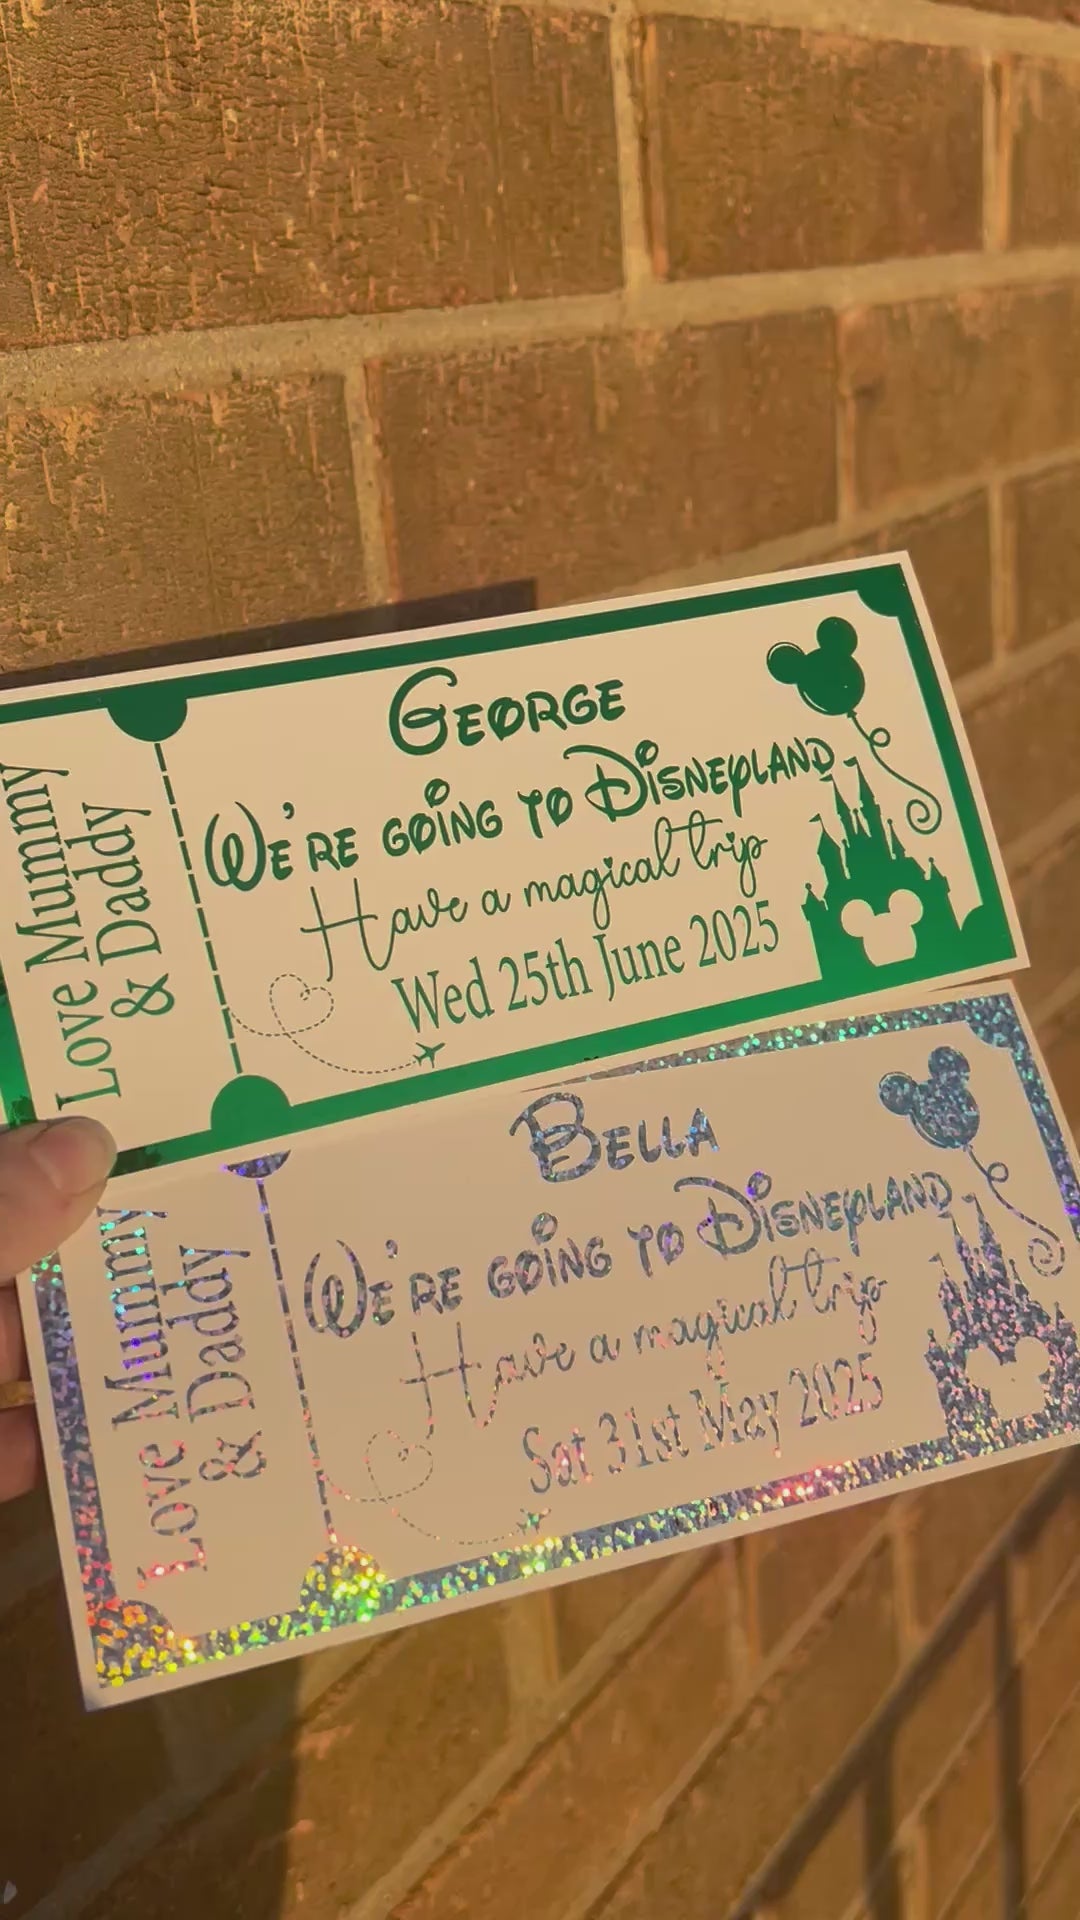 Love Mummy
& Daddy
GEORGE
WE'RE GOING TO DISNEYLAND
Have a magical trip
Wed 25th June 2025
Love Mummy
& Daddy
BELLA
WE'RE GOING TO DISNEYLAND
Have a magical trip
Sat 31st May 2025